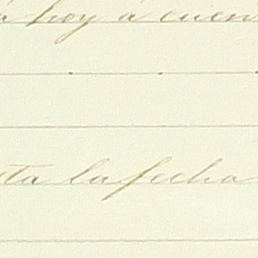 á hoy á cuen
ta la fecha